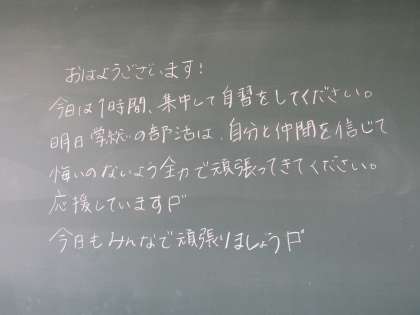 おはようございます!
今日は1時間、集中して自習をしてください。
明日学総の部活は、自分と仲間を信じて
悔いのないよう全力で頑張ってきてください。
応援しています
今日もみんなで頑張りましょう